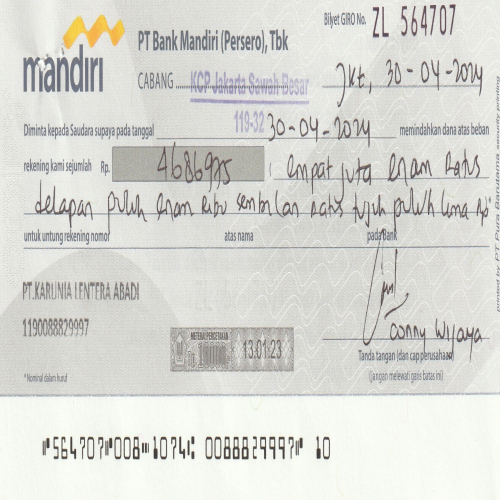 mandiri
PT Bank Mandiri (Persero), Tbk
Bilyet GIRO No. ZL 564707
CABANG KCP Jakarta Sawah Besar
119-32
Jkt, 30-04-2024
Diminta kepada Saudara supaya pada tanggal 30-04-2024 memindahkan dana atas beban
rekening kami sejumlah Rp. 4686975 ( empat juta enam Ratus
delapan puluh enam Ribu sembilan Ratus tujuh puluh lima Rp *
untuk untung rekening nomor atas nama pada Bank
PT.KARUNIA LENTERA ABADI
1190088829997
METERAI PERCETAKAN
10000
13.01.23
Conny Wijaya
Tanda tangan (dan cap perusahaan)
(jangan melewati garis batas ini)
* Nominal dalam huruf
564707 008 1074 0088829997 10